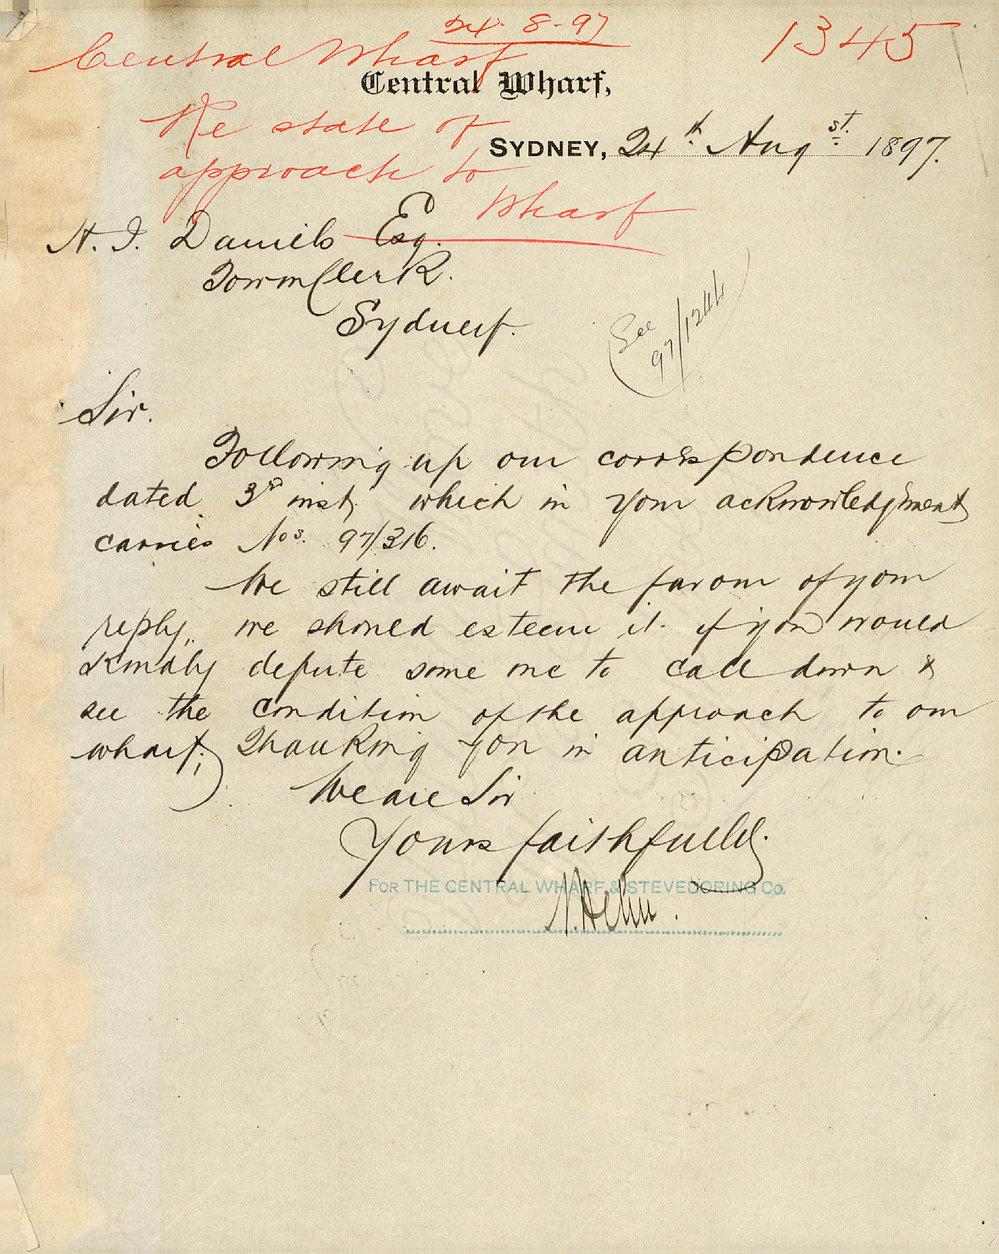 24. 8-97
1345
Central Wharf
Central Wharf,
Re state of
SYDNEY, 24th Augst. 1897.
approach to
Wharf
H. J. Daniels Esq.
Town Clerk.
Sydney.
See
97/1244
Sir.
Following up our correspondence
dated 3rd inst, which in your acknowledgment
carries Nos. 97/316.
We still await the favour of your
reply, we should esteem it if you would
kindly depute some one to call down &
see the condition of the approach to our
wharf; Thanking you in anticipation.
We are Sir
Yours faithfully.
FOR THE CENTRAL WHARF & STEVEDORING Co.